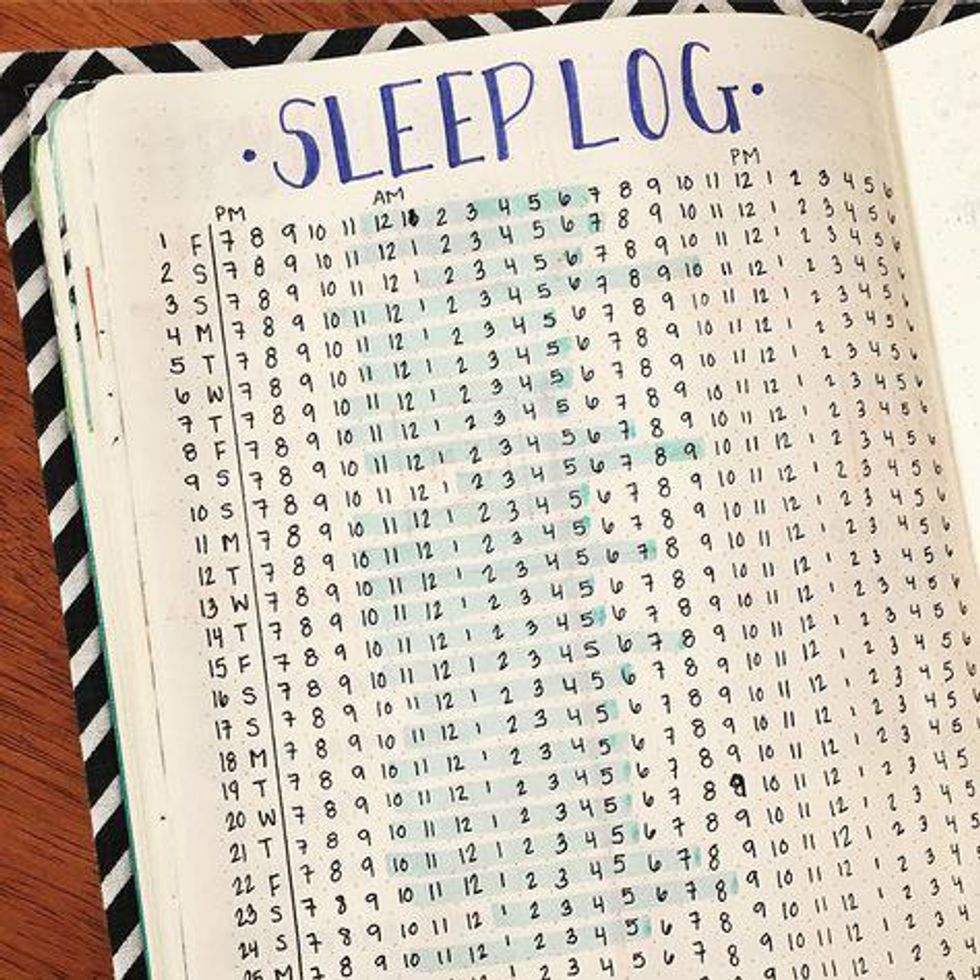 ·SLEEP LOG·
PM AM PM
1 F 7 8 9 10 11 12 1 2 3 4 5 6 7 8 9 10 11 12 1 2 3 4 5 6
2 S 7 8 9 10 11 12 1 2 3 4 5 6 7 8 9 10 11 12 1 2 3 4 5 6
3 S 7 8 9 10 11 12 1 2 3 4 5 6 7 8 9 10 11 12 1 2 3 4 5 6
4 M 7 8 9 10 11 12 1 2 3 4 5 6 7 8 9 10 11 12 1 2 3 4 5 6
5 T 7 8 9 10 11 12 1 2 3 4 5 6 7 8 9 10 11 12 1 2 3 4 5 6
6 W 7 8 9 10 11 12 1 2 3 4 5 6 7 8 9 10 11 12 1 2 3 4 5 6
7 T 7 8 9 10 11 12 1 2 3 4 5 6 7 8 9 10 11 12 1 2 3 4 5 6
8 F 7 8 9 10 11 12 1 2 3 4 5 6 7 8 9 10 11 12 1 2 3 4 5 6
9 S 7 8 9 10 11 12 1 2 3 4 5 6 7 8 9 10 11 12 1 2 3 4 5 6
10 S 7 8 9 10 11 12 1 2 3 4 5 6 7 8 9 10 11 12 1 2 3 4 5 6
11 M 7 8 9 10 11 12 1 2 3 4 5 6 7 8 9 10 11 12 1 2 3 4 5 6
12 T 7 8 9 10 11 12 1 2 3 4 5 6 7 8 9 10 11 12 1 2 3 4 5 6
13 W 7 8 9 10 11 12 1 2 3 4 5 6 7 8 9 10 11 12 1 2 3 4 5 6
14 T 7 8 9 10 11 12 1 2 3 4 5 6 7 8 9 10 11 12 1 2 3 4 5 6
15 F 7 8 9 10 11 12 1 2 3 4 5 6 7 8 9 10 11 12 1 2 3 4 5 6
16 S 7 8 9 10 11 12 1 2 3 4 5 6 7 8 9 10 11 12 1 2 3 4 5 6
17 S 7 8 9 10 11 12 1 2 3 4 5 6 7 8 9 10 11 12 1 2 3 4 5 6
18 M 7 8 9 10 11 12 1 2 3 4 5 6 7 8 9 10 11 12 1 2 3 4 5 6
19 T 7 8 9 10 11 12 1 2 3 4 5 6 7 8 9 10 11 12 1 2 3 4 5
20 W 7 8 9 10 11 12 1 2 3 4 5 6 7 8 9 10 11 12 1 2 3 4 5
21 T 7 8 9 10 11 12 1 2 3 4 5 6 7 8 9 10 11 12 1 2 3 4 5
22 F 7 8 9 10 11 12 1 2 3 4 5 6 7 8 9 10 11 12 1 2 3 4 5
23 S 7 8 9 10 11 12 1 2 3 4 5 6 7 8 9 10 11 12 1 2 3 4 5
24 S 7 8 9 10 11 12 1 2 3 4 5 6 7 8 9 10 11 12 1 2 3 4
25 M 7 8 9 10 11 12 1 2 3 4 5 6 7 8 9 10 11 12 1 2 3 4